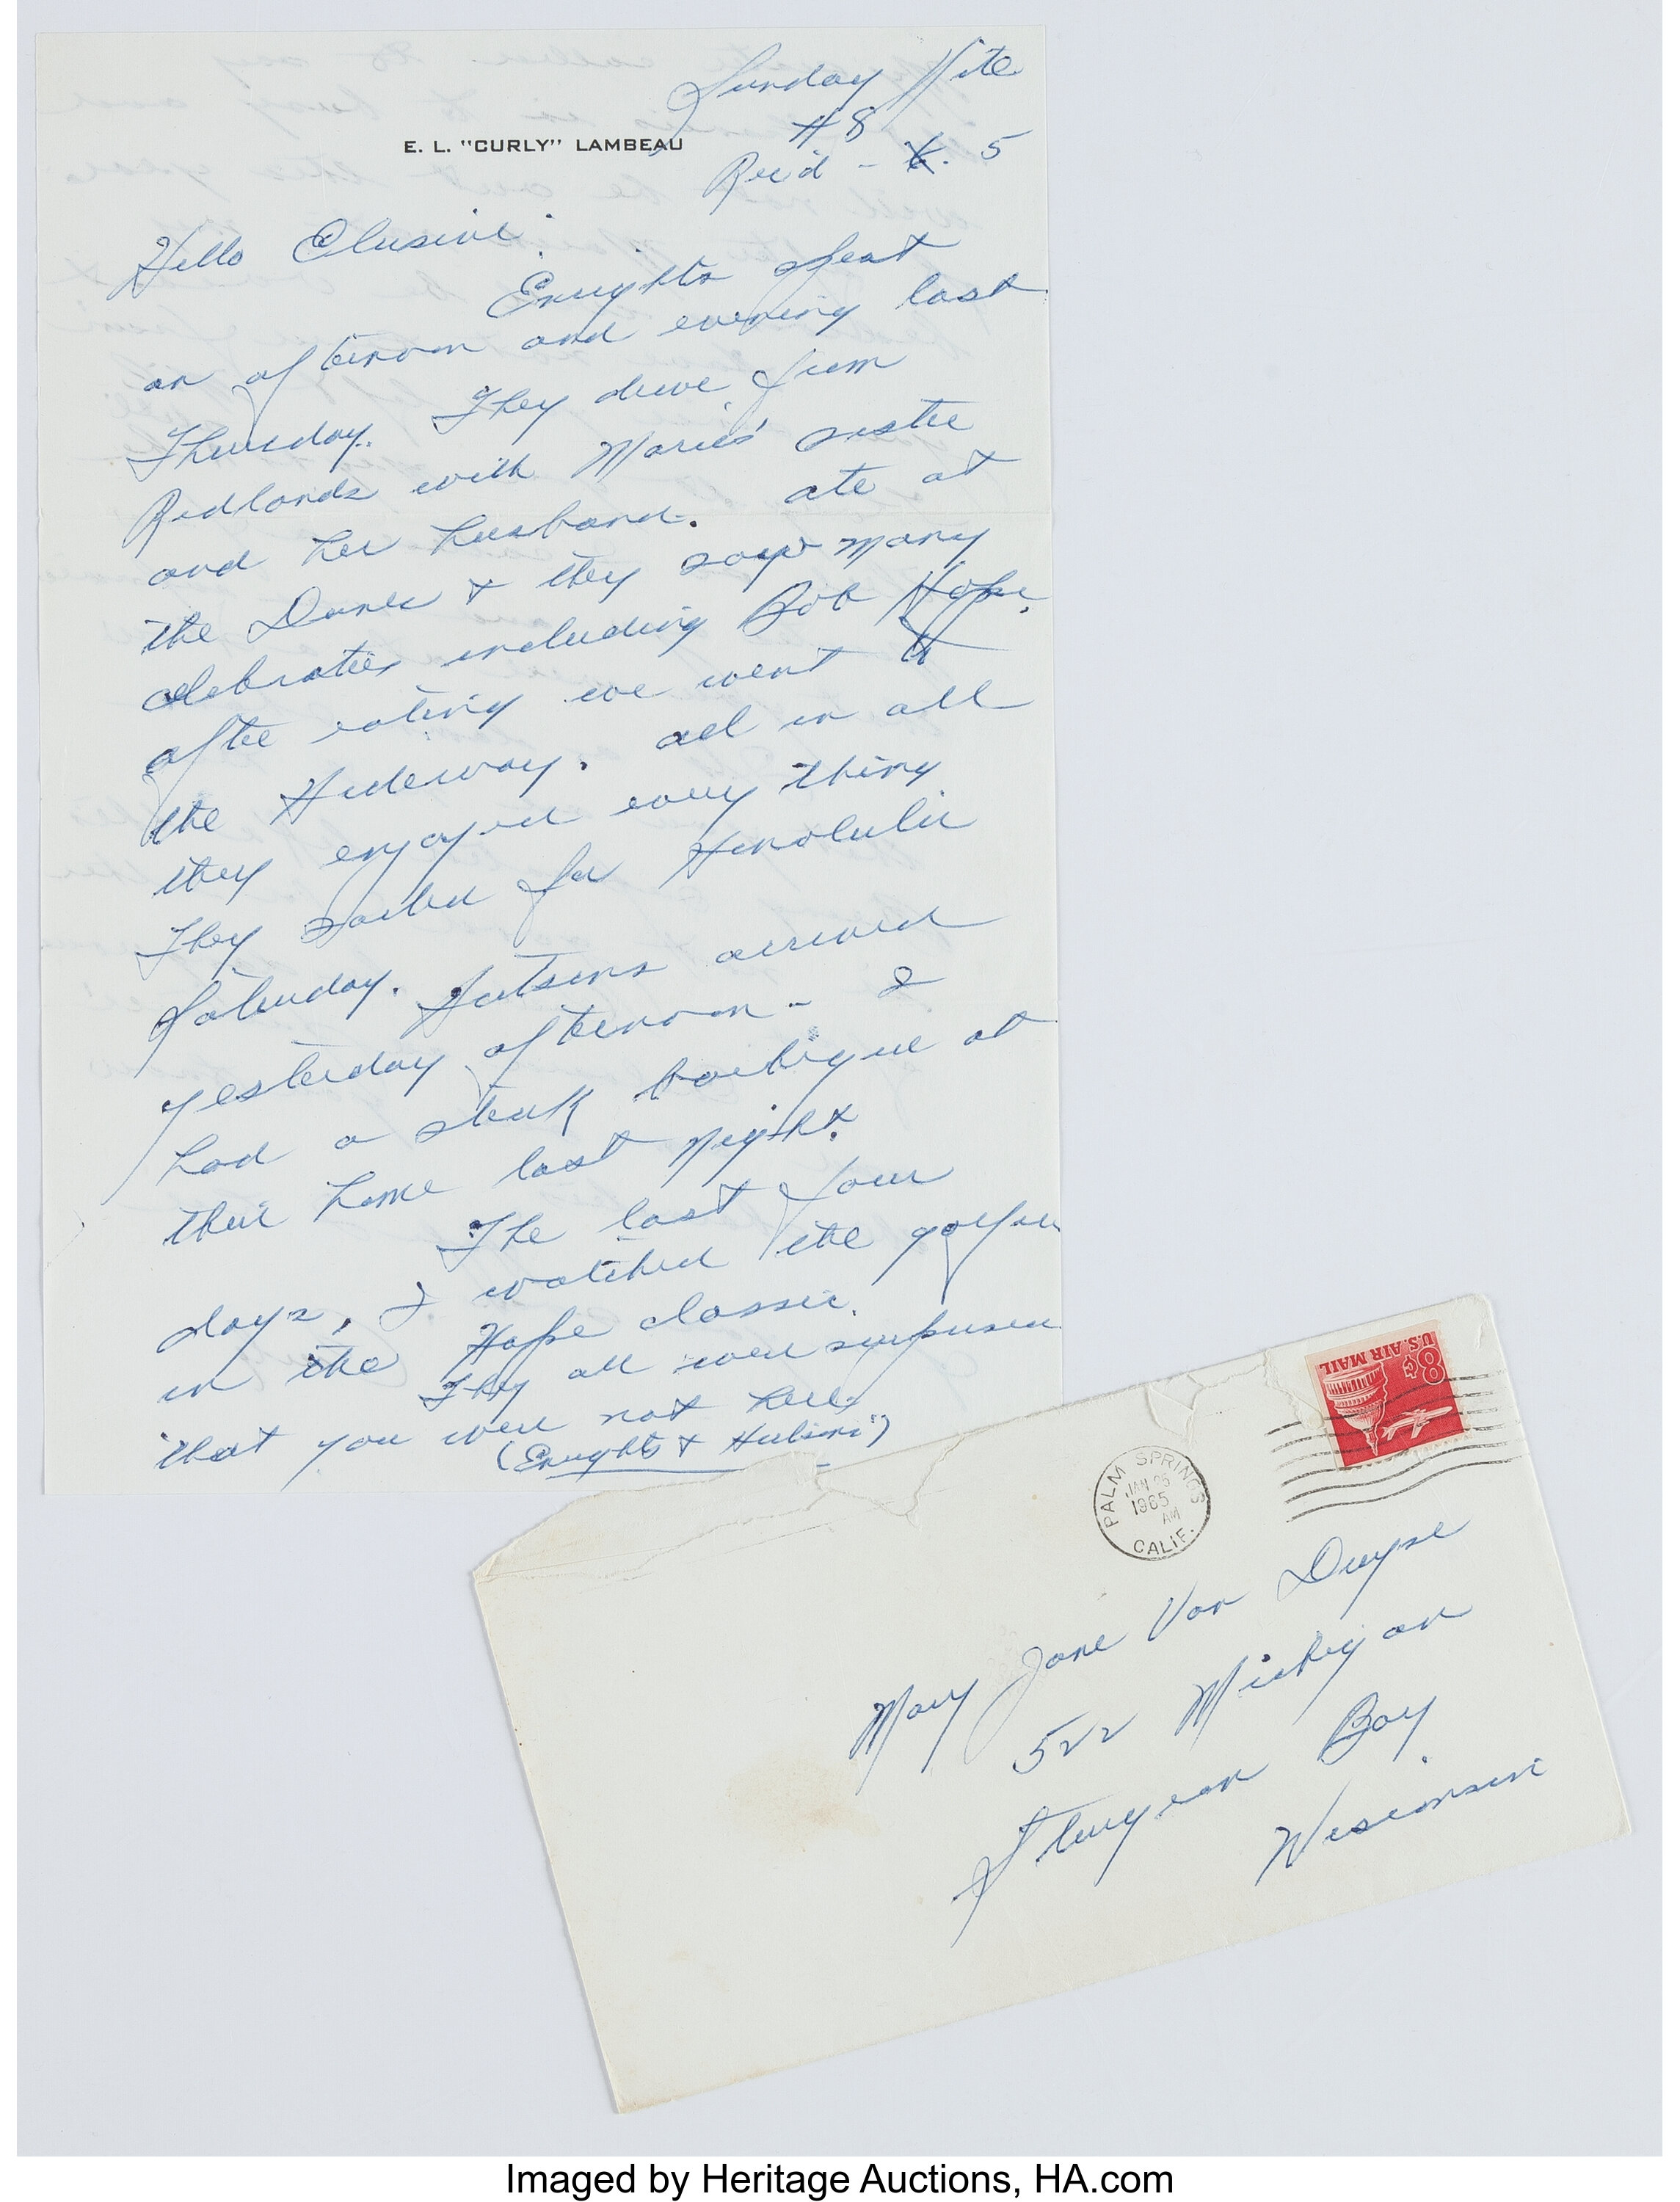 Sunday Nite
#8
E. L. "CURLY" LAMBEAU
Rec'd - 5
Hello Elusive:
Enrights spent
an afternoon and evening last
Thursday. They drove from
Redlands with Marie's sister
and her husband. ate at
the Dunes + they saw many
celebraties including Bob Hope.
after eating we went to
the Hideway. all in all
they enjoyed every thing
They sailed for Honolulu
Saturday. Hutsons arrived
yesterday afternoon - I
had a steak barbique at
their home last night.
The last four
days, I watched the golfers
in the Hope classic.
They all were surprised
that you were not here.
(Enrights + Hutsons)
U.S. AIR MAIL
8¢
PALM SPRINGS
JAN 25
1965
AM
CALIF.
Mary Jane Van Duyse
522 Michigan
Sturgeon Bay
Wisconsin
Imaged by Heritage Auctions, HA.com